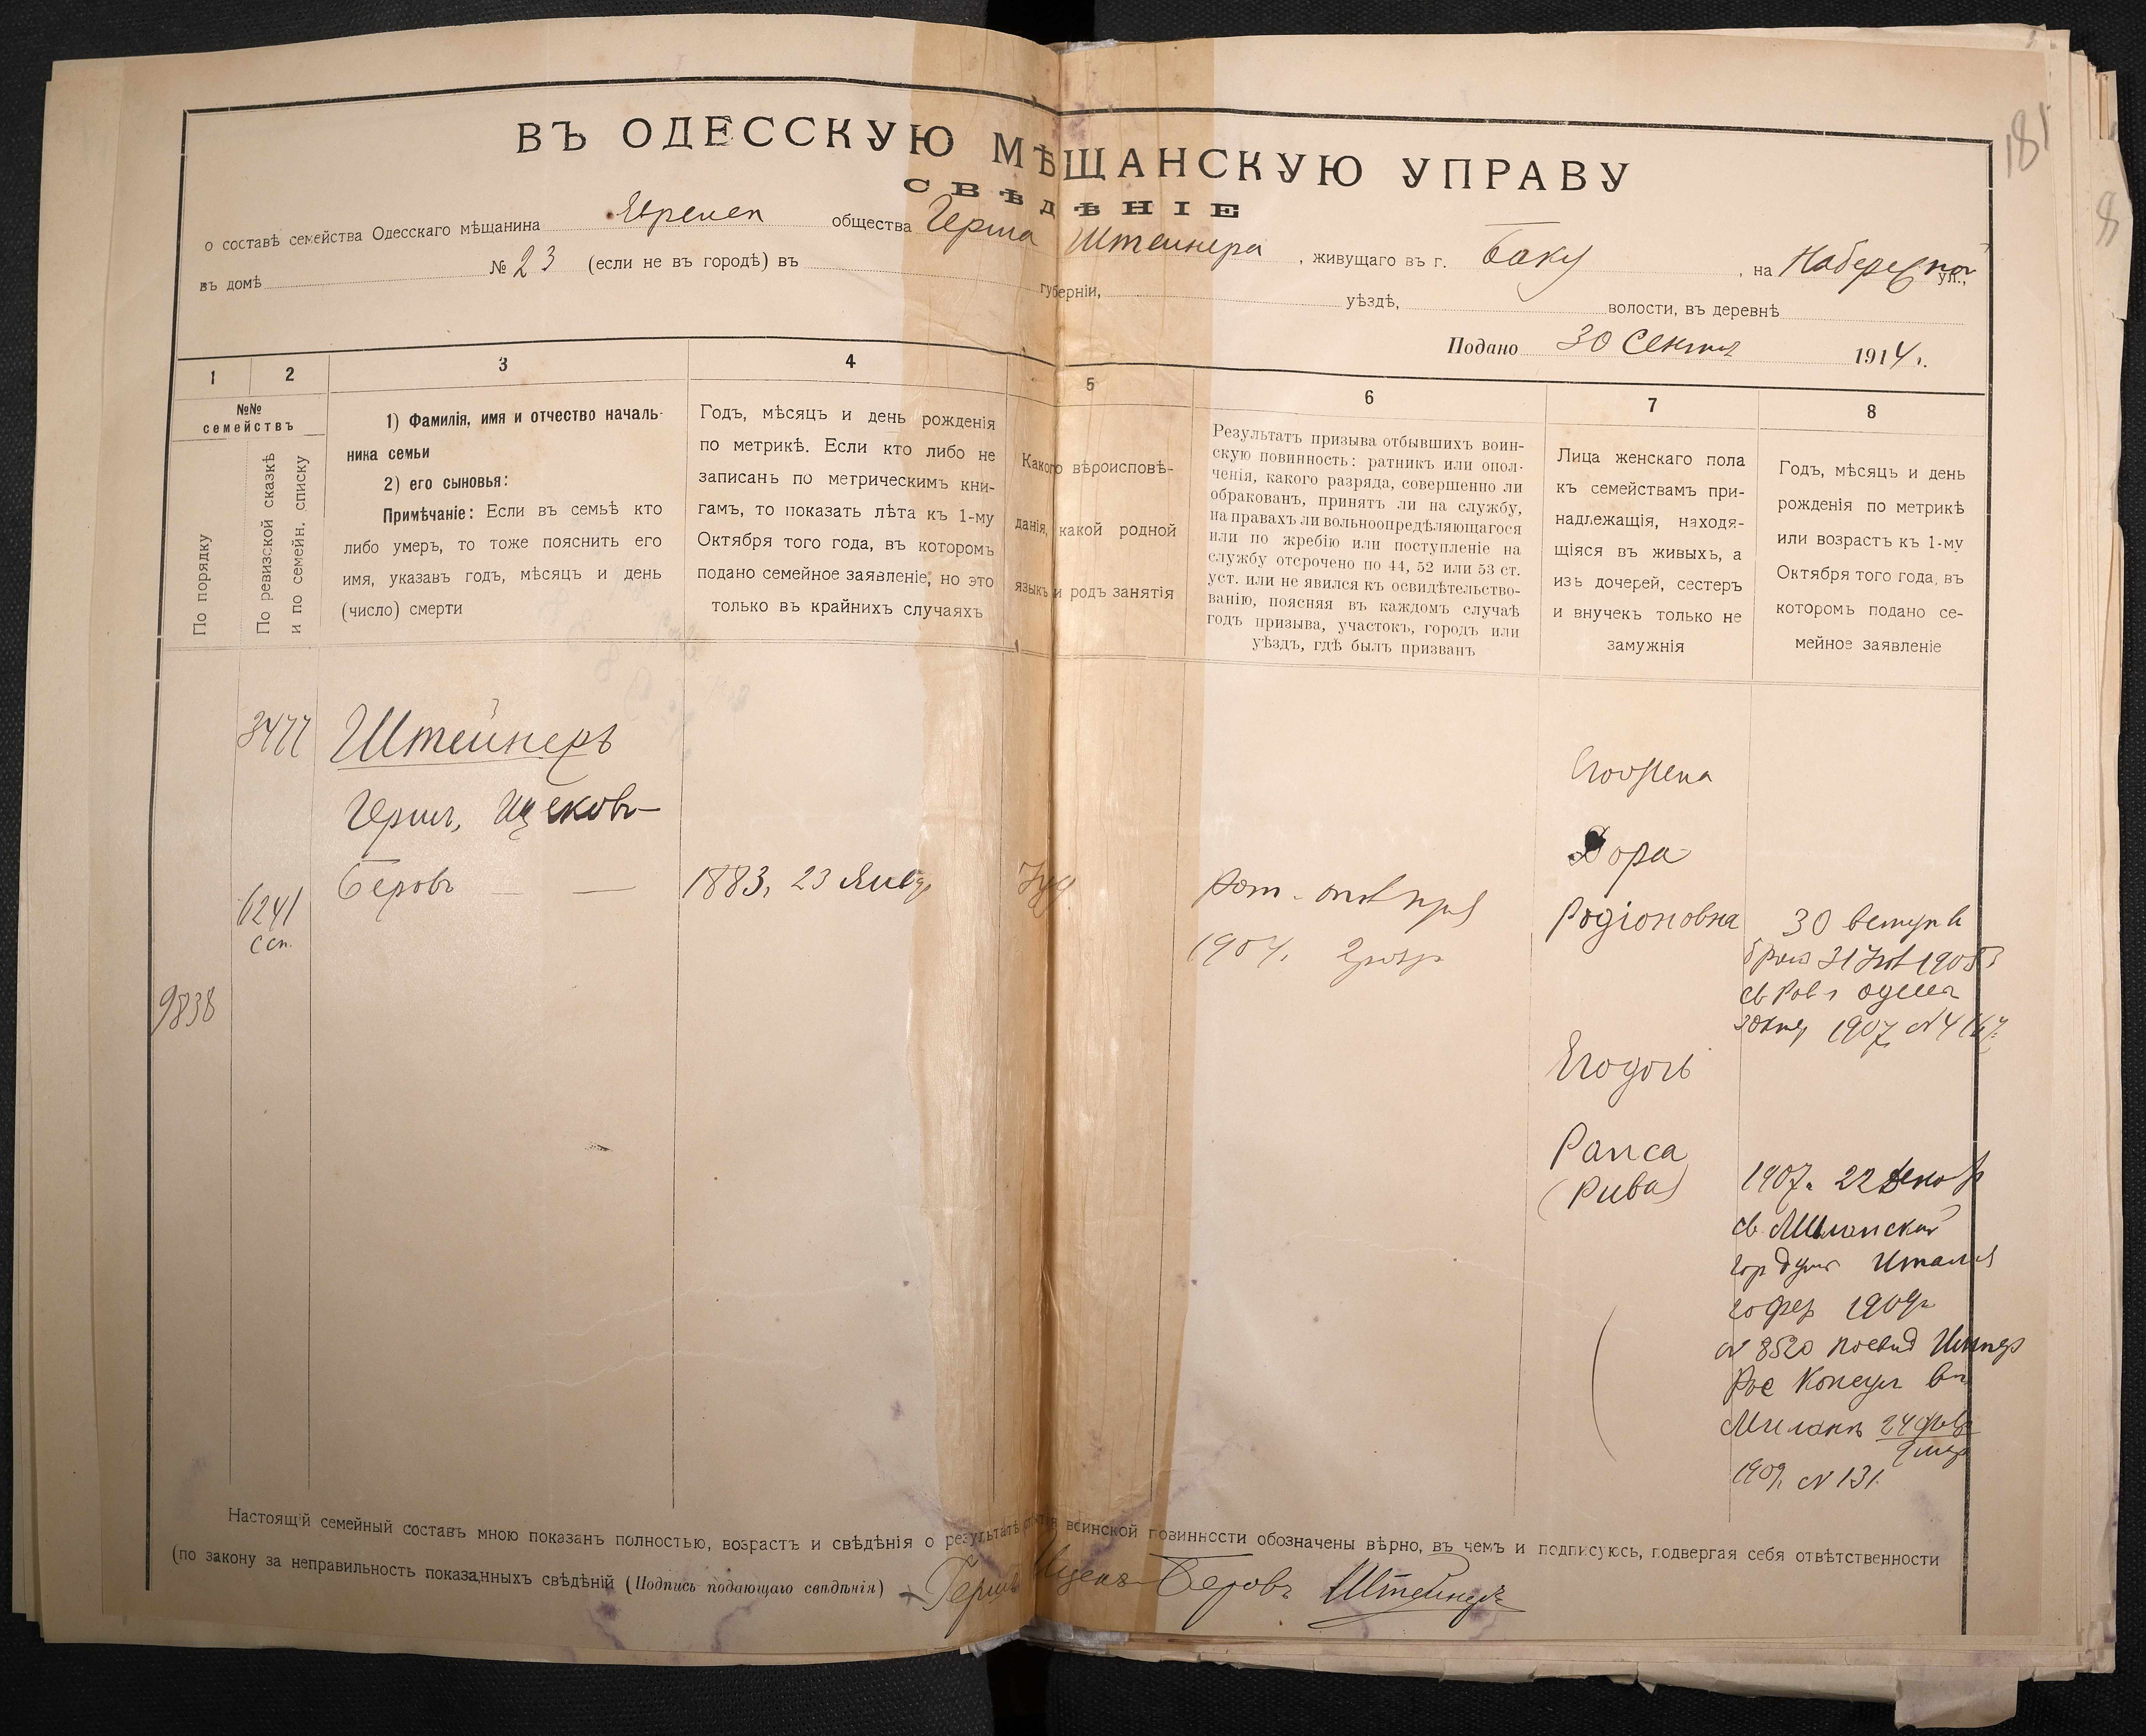 181
8
ВЪ ОДЕССКУЮ МѢЩАНСКУЮ УПРАВУ
СВѢДѢНІЕ
о составѣ семейства Одесскаго мѣщанина общества Герша Штейнера, живущаго въ г. Баку, на Набережной ул.,
въ домѣ № 23 (если не въ городѣ) въ губерніи, уѣздѣ, волости, въ деревнѣ
Подано 30 1914 г.
1
2
3
4
5
6
7
8
№№
семействъ
По порядку
По ревизской сказкѣ
и по семейн. списку
1) Фамилія, имя и отчество началь-
ника семьи
2) его сыновья:
Примѣчаніе: Если въ семьѣ кто
либо умеръ, то тоже пояснить его
имя, указавъ годъ, мѣсяцъ и день
(число) смерти
Годъ, мѣсяцъ и день рожденія
по метрикѣ. Если кто либо не
записанъ по метрическимъ кни-
гамъ, то показать лѣта къ 1-му
Октября того года, въ которомъ
подано семейное заявленіе, но это
только въ крайнихъ случаяхъ
Какого вѣроисповѣ-
данія, какой родной
языкъ и родъ занятія
Результатъ призыва отбывшихъ воин-
скую повинность: ратникъ или опол-
ченія, какого разряда, совершенно ли
обракованъ, принятъ ли на службу,
на правахъ ли вольноопредѣляющагося
или по жребію или поступленіе на
службу отсрочено по 44, 52 или 53 ст.
уст. или не явился къ освидѣтельство-
ванію, поясняя въ каждомъ случаѣ
годъ призыва, участокъ, городъ или
уѣздъ, гдѣ былъ призванъ
Лица женскаго пола
къ семействамъ при-
надлежащія, находя-
щіяся въ живыхъ, а
изъ дочерей, сестеръ
и внучекъ только не
замужнія
Годъ, мѣсяцъ и день
рожденія по метрикѣ
или возрастъ къ 1-му
Октября того года, въ
которомъ подано се-
мейное заявленіе
3477
Штейнеръ
Гершъ, Ицековъ-
Беровъ
6241
9838
1883, 23 Янв
Іуд
1904. 2 разр
Его жена
Дора
Родіоновна
30
1907
Его дочь
Раиса
(Рива)
1907. 22 Декаб
св Миланской
гор Думы Италія
1909
№ 8520
Рос Консул въ
Миланѣ 24
1909 № 131.
Настоящій семейный составъ мною показанъ полностью, возрастъ и свѣдѣнія о результатѣ воинской повинности обозначены вѣрно, въ чемъ и подписуюсь, подвергая себя отвѣтственности
(по закону за неправильность показанныхъ свѣдѣній (Подпись подающаго свѣдѣнія) Гершъ Ицекъ-Беровъ Штейнеръ